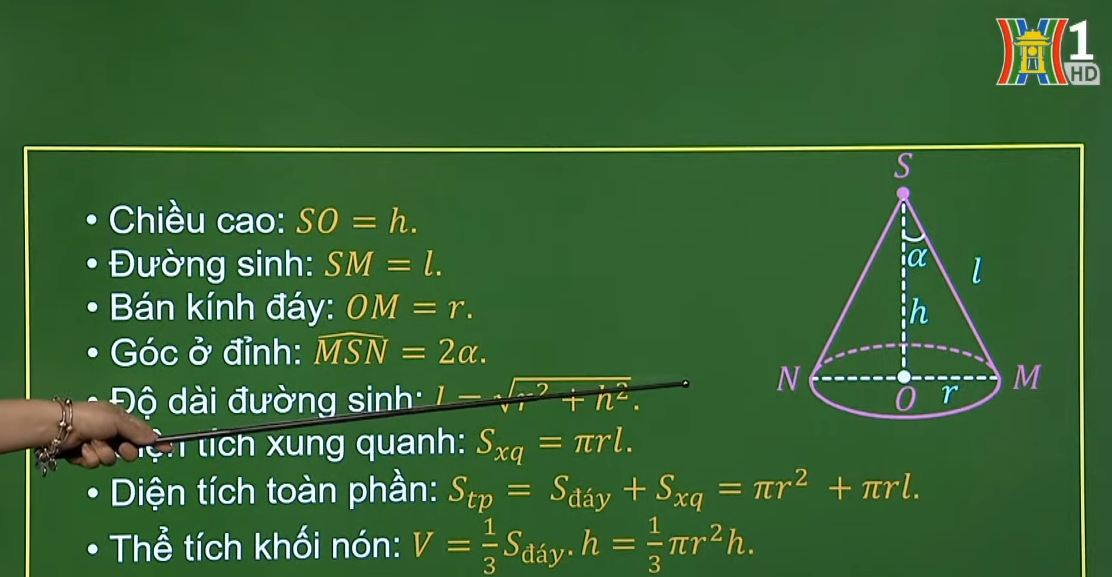 1
HD
• Chiều cao: SO = h.
• Đường sinh: SM = l.
• Bán kính đáy: OM = r.
• Góc ở đỉnh: \widehat{MSN} = 2α.
• Độ dài đường sinh: l = √(r² + h²).
tích xung quanh: S_{xq} = πrl.
• Diện tích toàn phần: S_{tp} = S_{đáy} + S_{xq} = πr² + πrl.
• Thể tích khối nón: V = \frac{1}{3}S_{đáy}.h = \frac{1}{3}πr²h.
S
α
l
h
N
O
r
M